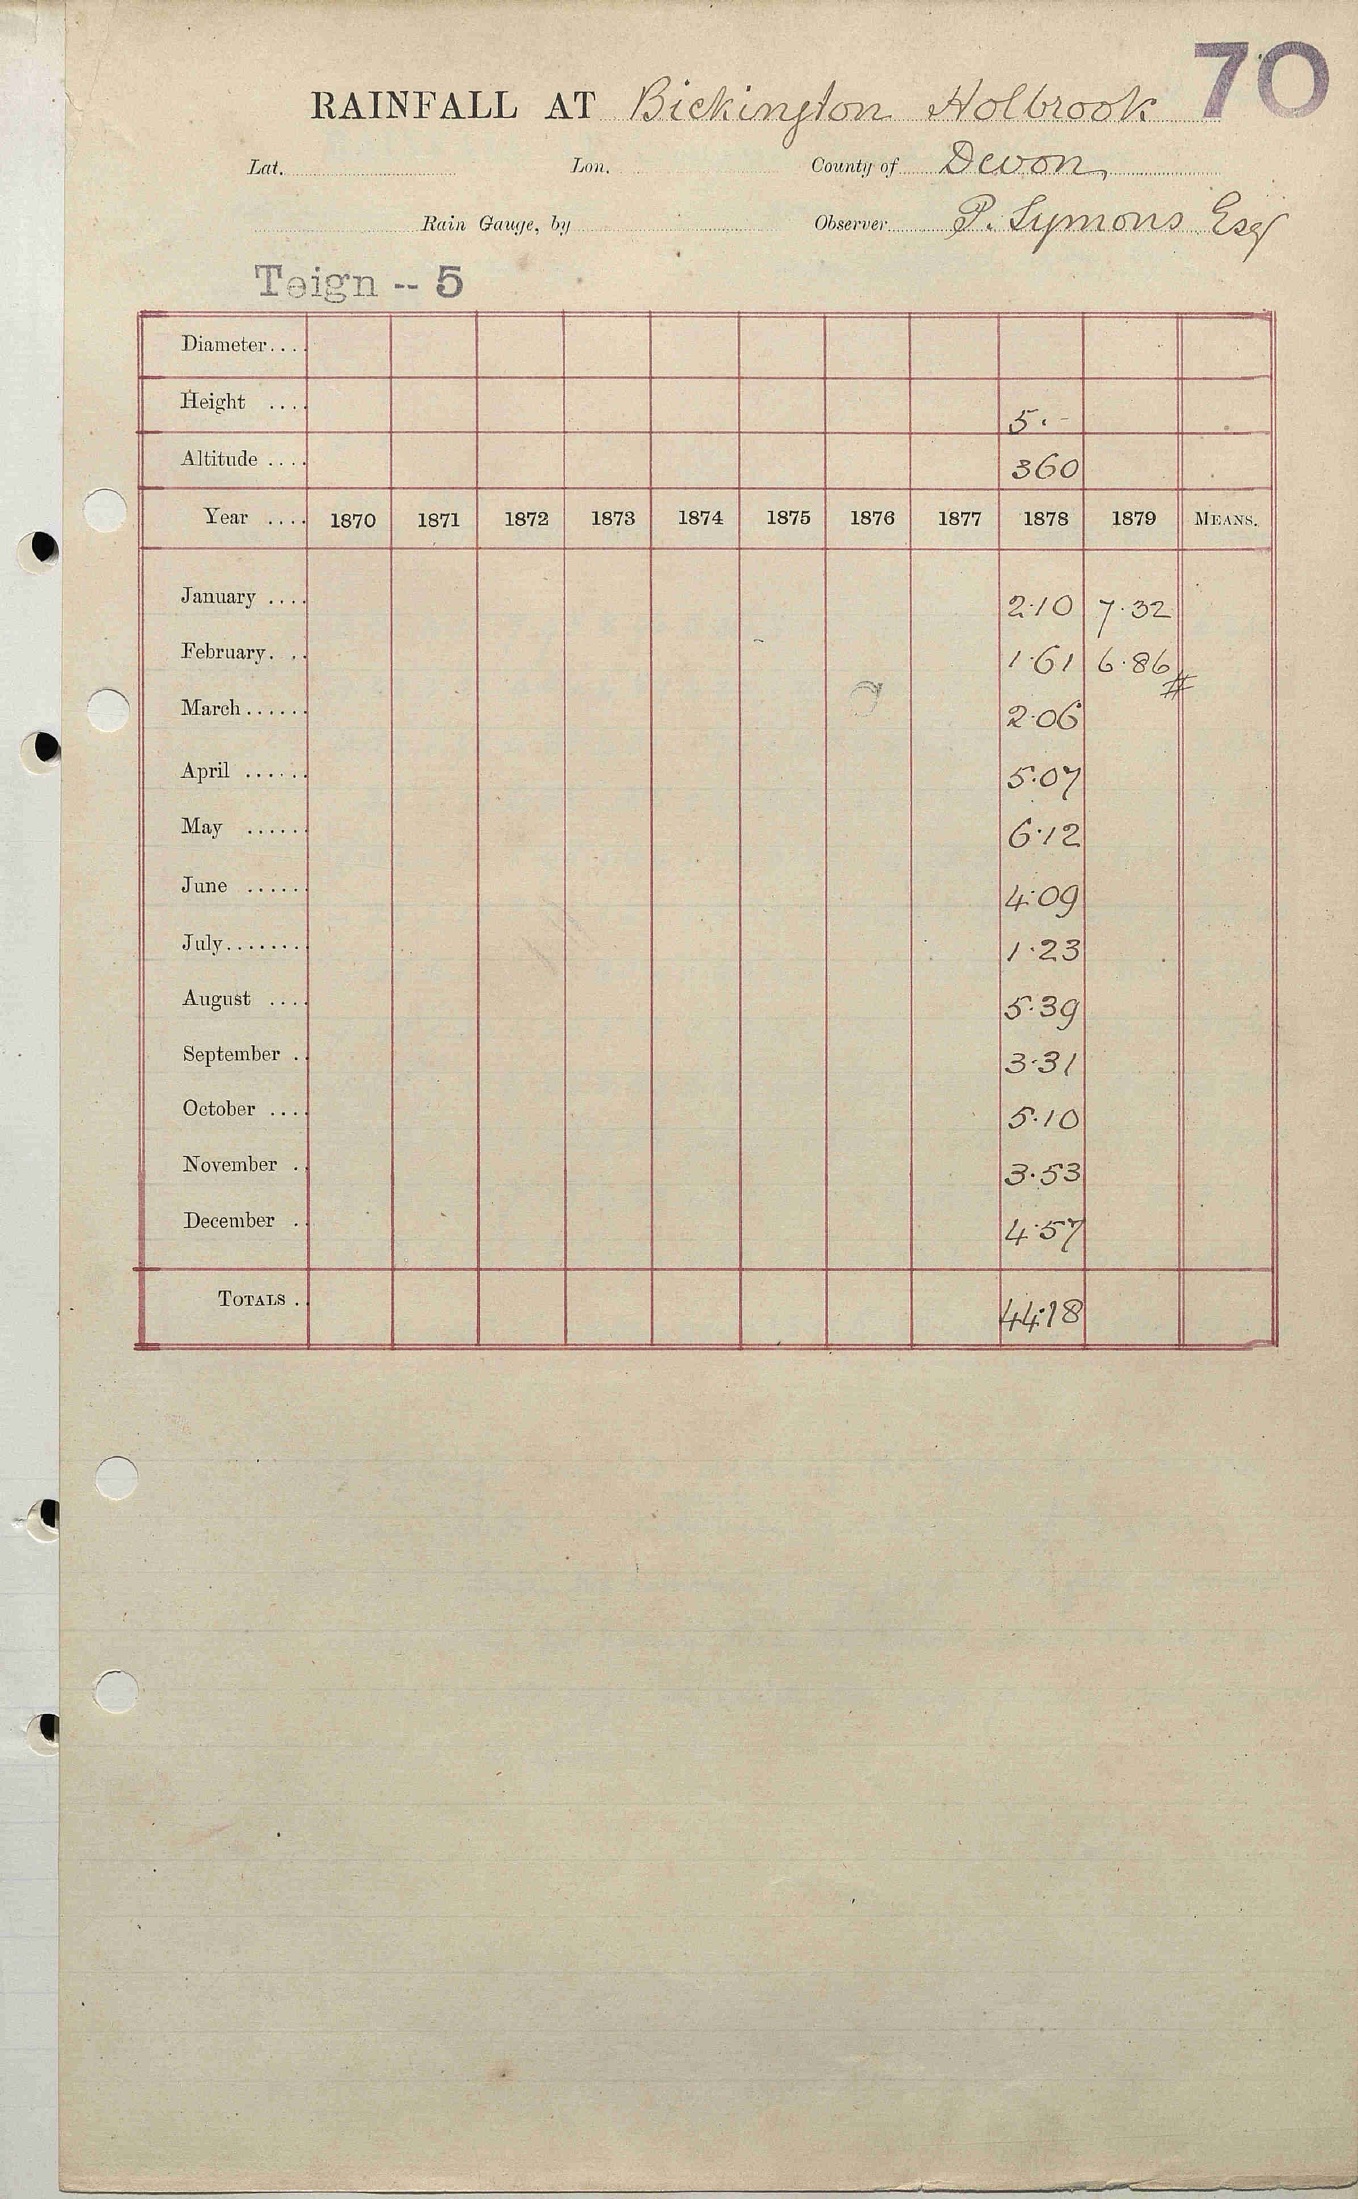 70
RAINFALL AT Bickington Holbrook
Lat. Lon. County of Devon
Rain Gauge, by Observer P. Symons Esq
Teign -- 5
Diameter....
Height .... 5.-
Altitude .... 360
Year .... 1870 1871 1872 1873 1874 1875 1876 1877 1878 1879 MEANS.
January .... 2.10 7.32
February. .. 1.61 6.86 #
March...... 2.06
April ...... 5.07
May ...... 6.12
June ...... 4.09
July........ 1.23
August .... 5.39
September .. 3.31
October .... 5.10
November .. 3.53
December .. 4.57
TOTALS .. 44.18